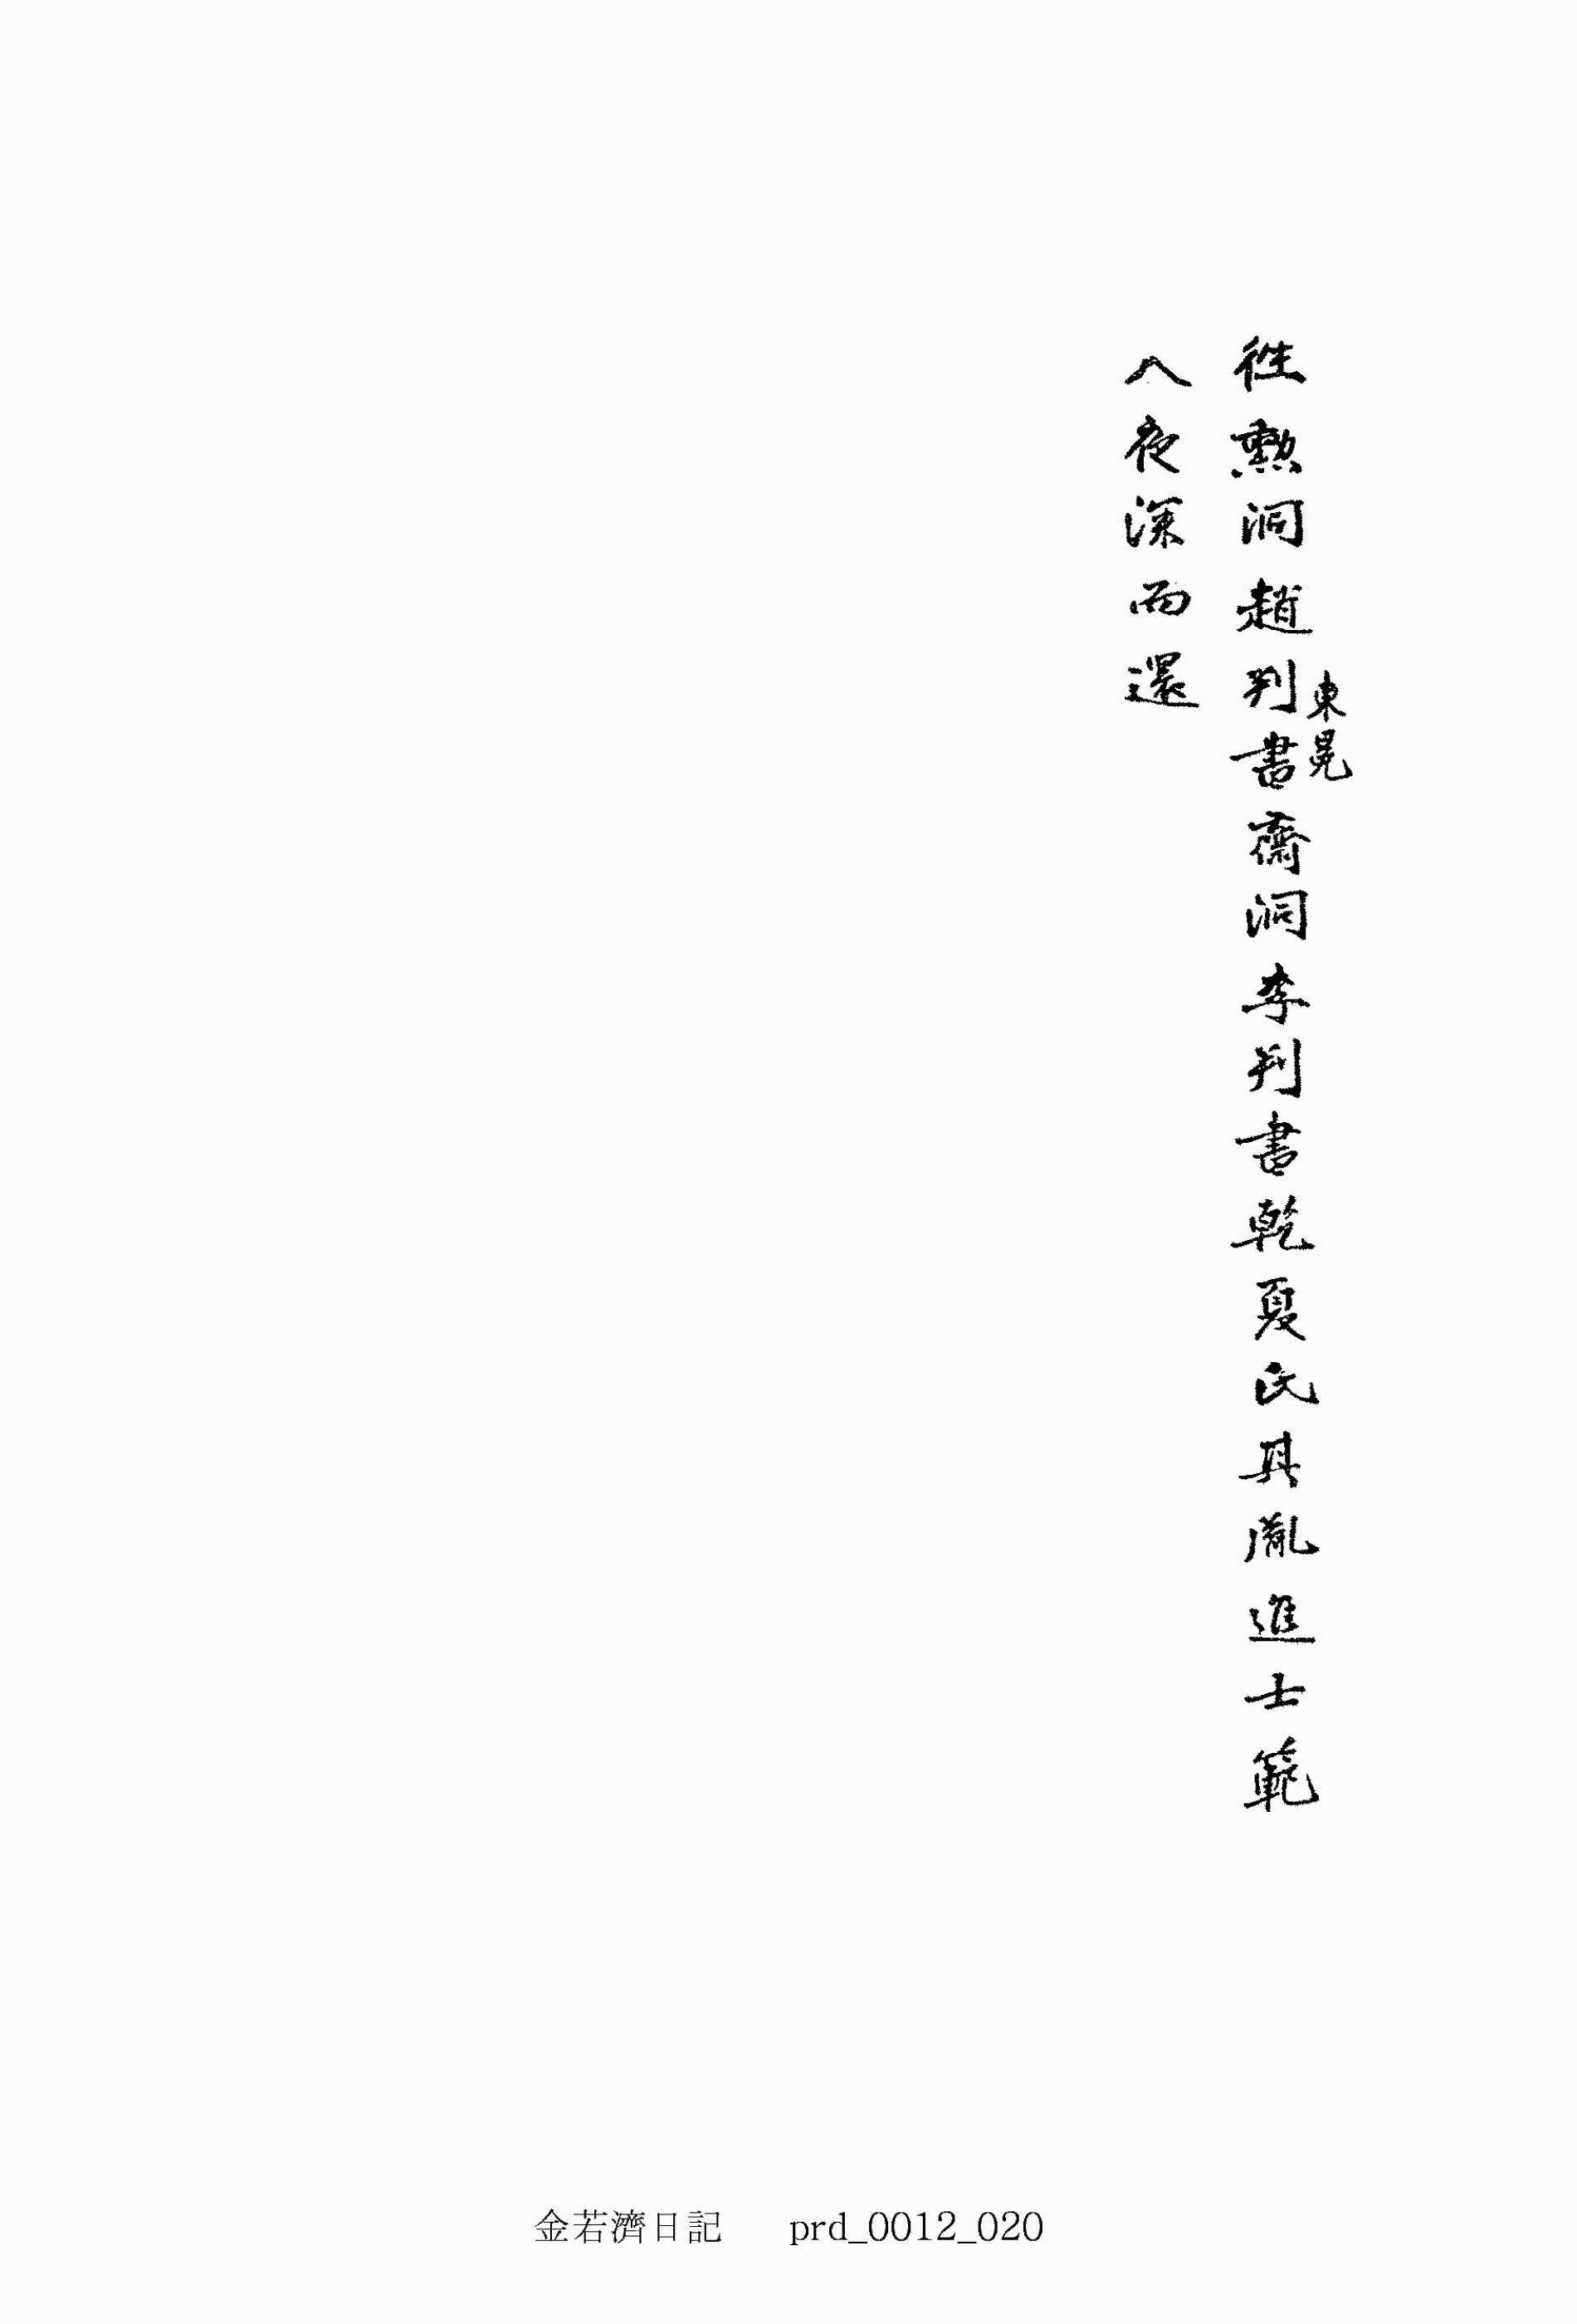 往勲洞趙判書東冕齋洞李判書乾夏氏其胤進士範
八夜深而還
金若濟日記 prd_0012_020